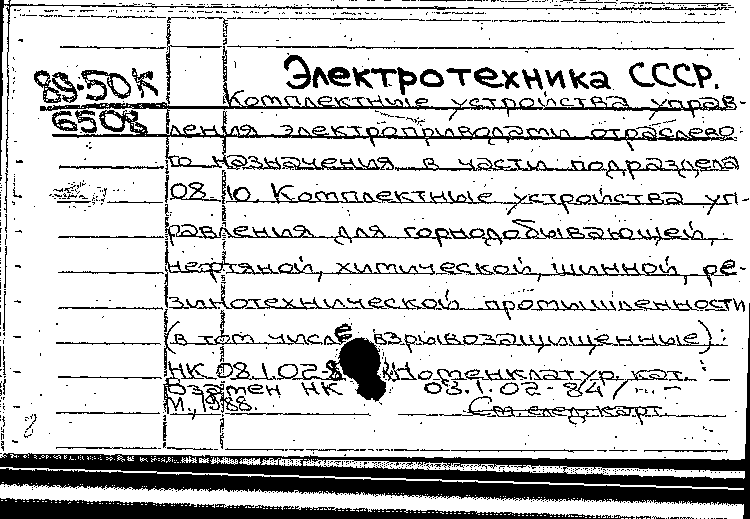 89-50К
6508
Электротехника СССР.
Комплектные устройства управ-
ления электроприводами отраслево-
го назначения в части подраздела
08.10. Комплектные устройства уп-
равления для горнодобывающей,
нефтяной, химической, шинной, ре-
зинотехнической промышленности
(в том числе взрывозащищенные):
НК 08.1.02- Номенклатур. кат.
Взамен НК 08.1.02-84/...-
М., 1988.
См. след. карт.
8